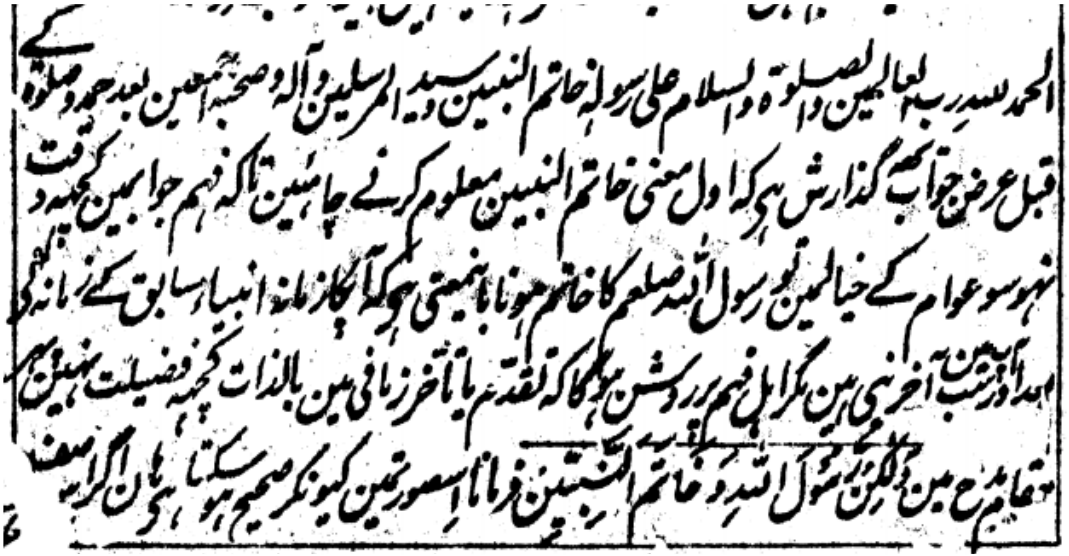 کے
الحمد للہ رب العالمین والصلوۃ والسلام علی رسولہ خاتم النبیین وسید المرسلین وآلہ وصحبہ اجمعین بعد حمد وصلوۃ
قبل عرض جواب یہہ گذارش ہی کہ اول معنی خاتم النبیین معلوم کرنے چاہئین تاکہ فہم جوابمین کچہہ دقت
نہو سو عوام کے خیالمین تو رسول اللہ صلعم کا خاتم ہونا باینمعنی ہی کہ آپکا زمانہ انبیاء سابق کے زمانہ کی
بعد اور آپ سب مین آخر نبی ہین مگر اہل فہم پر روشن ہوگا کہ تقدم یا تأخر زمانی مین بالذات کچہہ فضیلت نہین پہر
مقام مدح مین وَلٰکِنْ رَّسُوْلَ اللّٰہِ وَ خَاتَمَ النَّبِیّٖنَ فرمانا اسصورتمین کیونکر صحیح ہوسکتا ہی ہان اگر اس